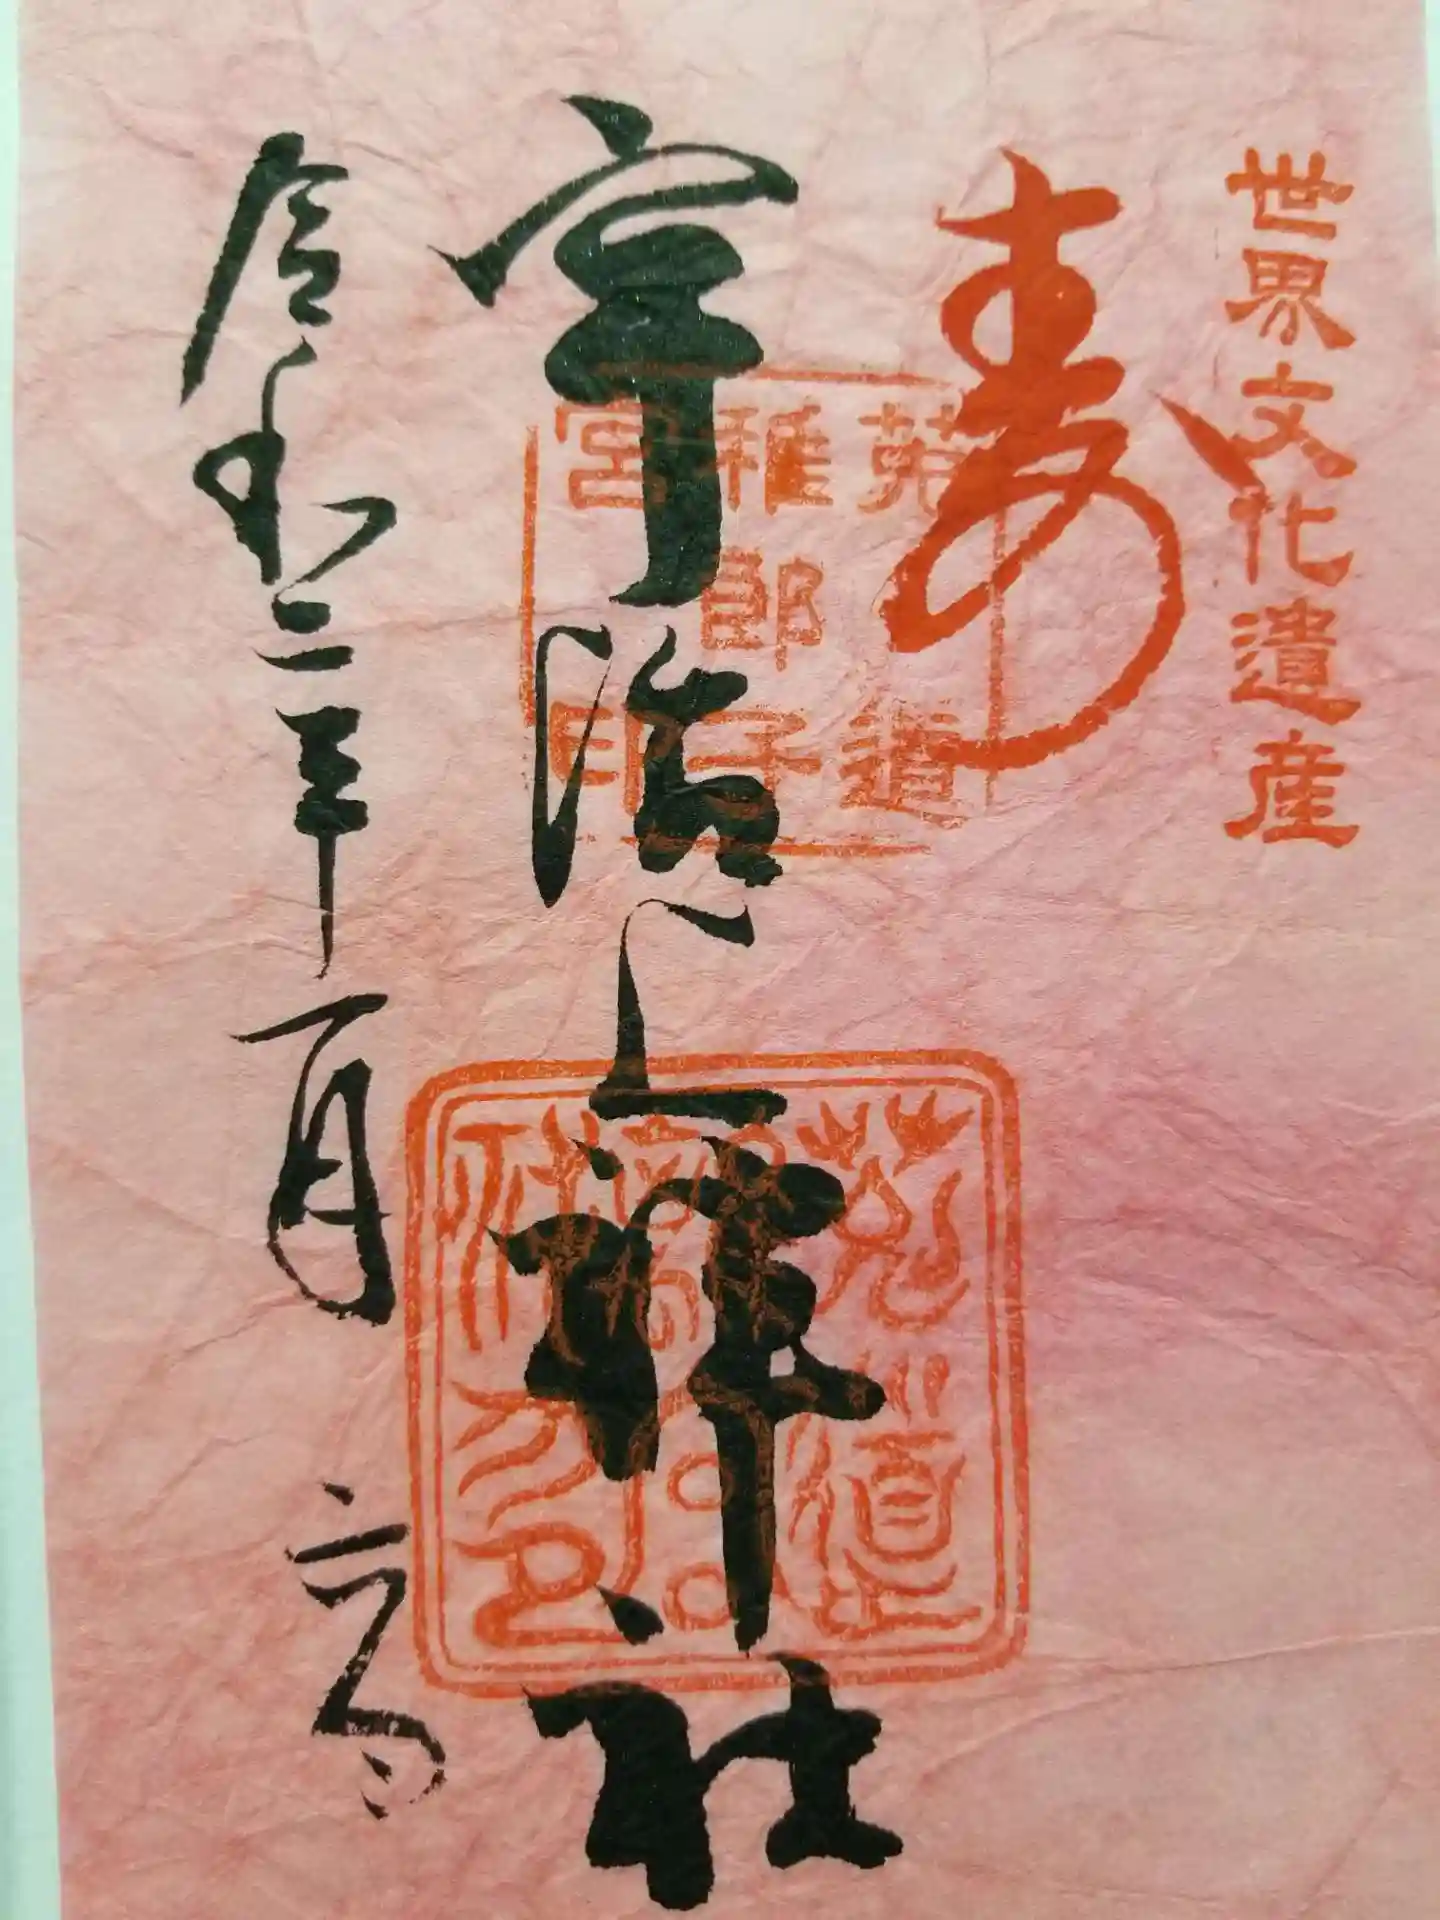 世界文化遺産
寿
菟道
稚郎子
宮印
宇治上神社
菟道
令和二年一月